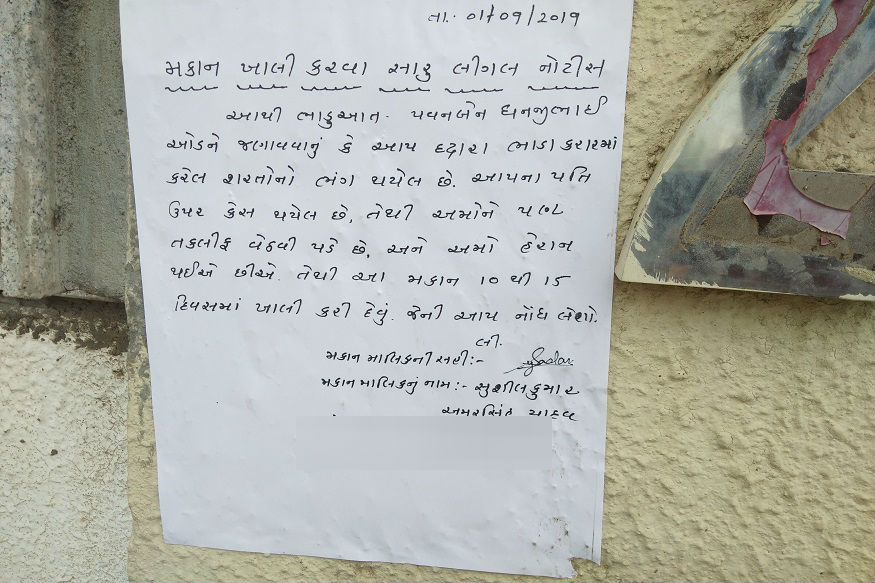 તા. 01/09/2019
મકાન ખાલી કરવા સારુ લીગલ નોટીસ
આથી ભાડુઆત. પવનબેન ધનજીભાઈ
ઓડને જણાવવાનું કે આપ દ્વારા ભાડા કરારમાં
કરેલ શરતોનો ભંગ થયેલ છે. આપના પતિ
ઉપર કેસ થયેલ છે, તેથી અમોને પણ
તકલીફ વેઠવી પડે છે, અને અમો હેરાન
થઈએ છીએ. તેથી આ મકાન 10 થી 15
દિવસમાં ખાલી કરી દેવું. જેની આપ નોંધ લેશો.
લી.
મકાન માલિકની સહી:-
મકાન માલિકનું નામ:- સુશીલકુમાર
અમરસિંહ યાદવ